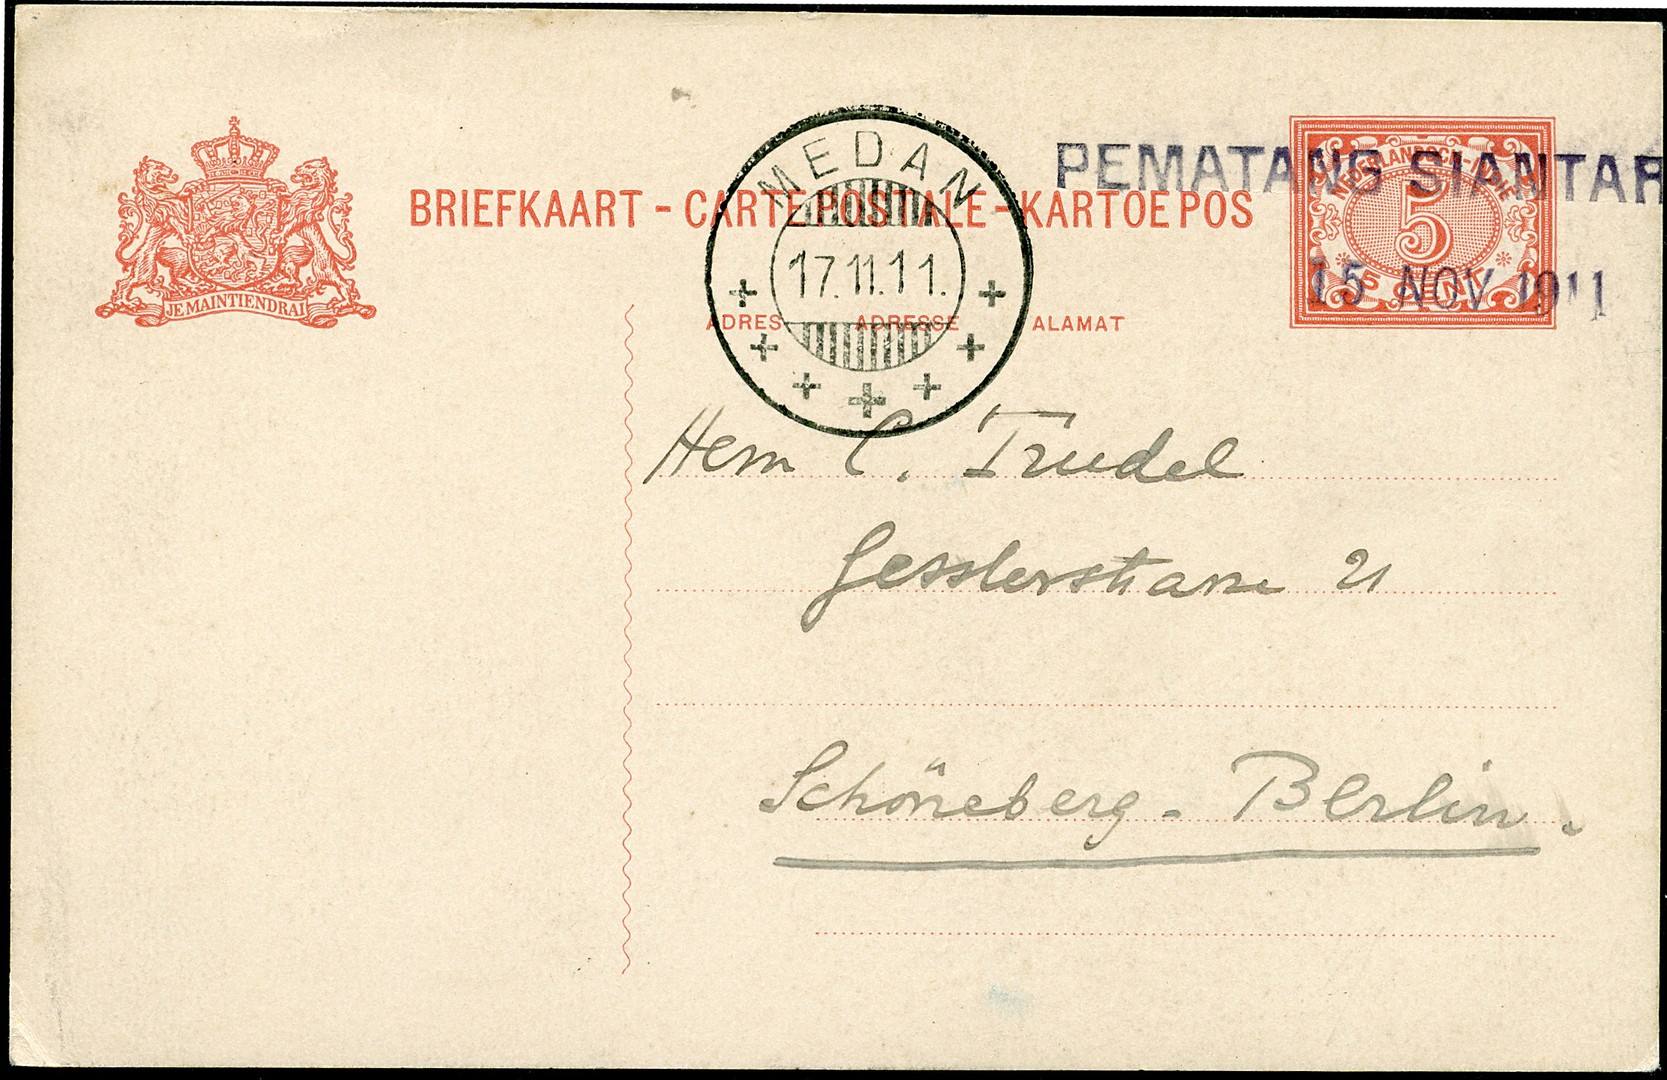 MEDAN
17.11.11.
PEMATANG SIANTAR
15 NOV 1911
NEDERLANDSCH-INDIË
5
5 CENT
JE MAINTIENDRAI
BRIEFKAART - CARTE POSTALE - KARTOEPOS
ADRES ADRESSE ALAMAT
Herrn C. Trudel
Gesslerstrasse 21
Schöneberg - Berlin.